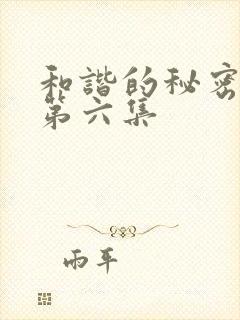 和諧的秘密
第六集
雨平